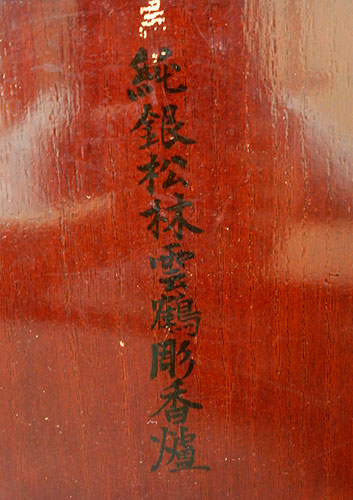 純銀松林雲鶴彫香爐